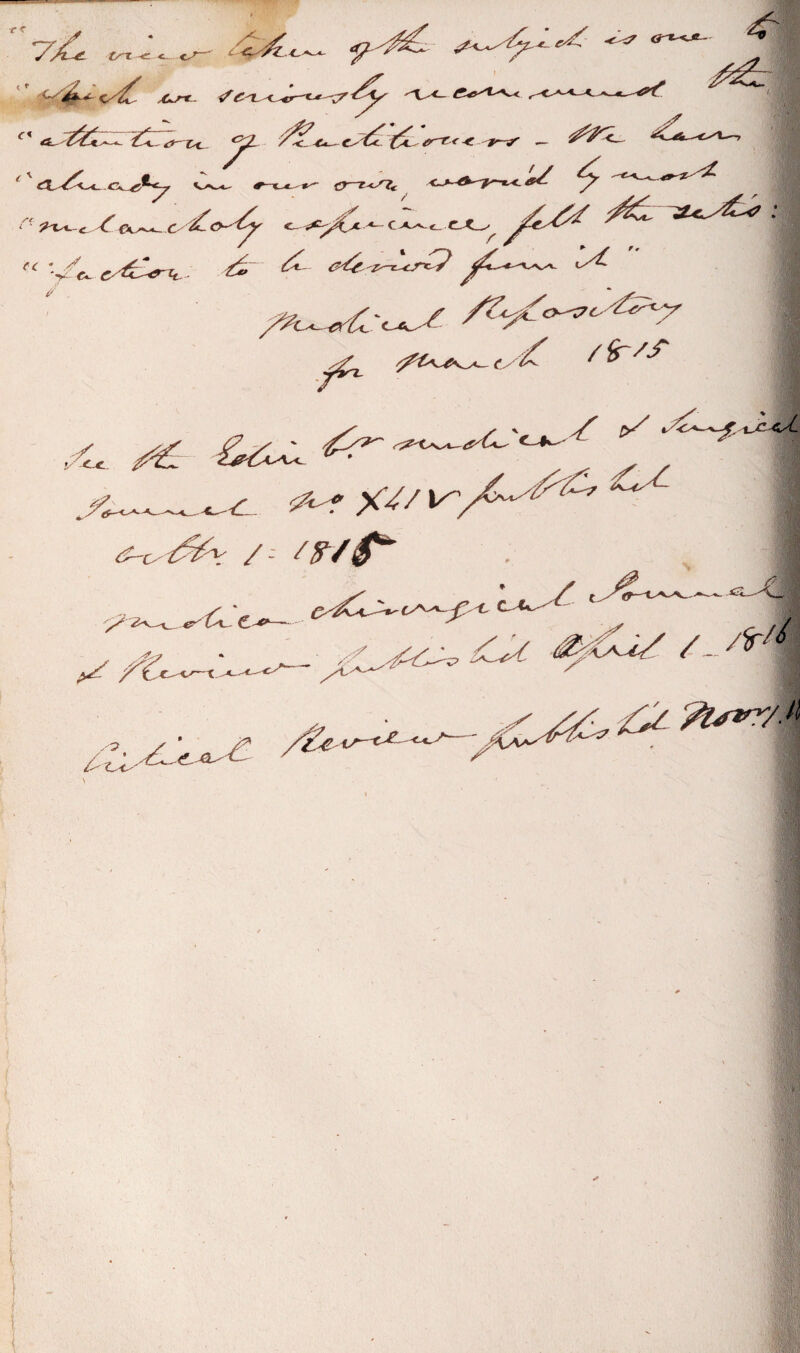 "The view taken of the subject is one to
"which we seriously recommend the
"attention of Practitioners - We have
"already in our own, warn'd by most
"melancholy experience, felt the satis:
":faction to be deriv'd from it"
Medical Repository
for March 1815
See the Edinbr medical & Surgical
Journal No XLIV publish'd
octbr. 1 = 1815
medico chirurgical Journal
& Review publish'd April 1 - 1816
Critical Review publish'd Novr. 1.